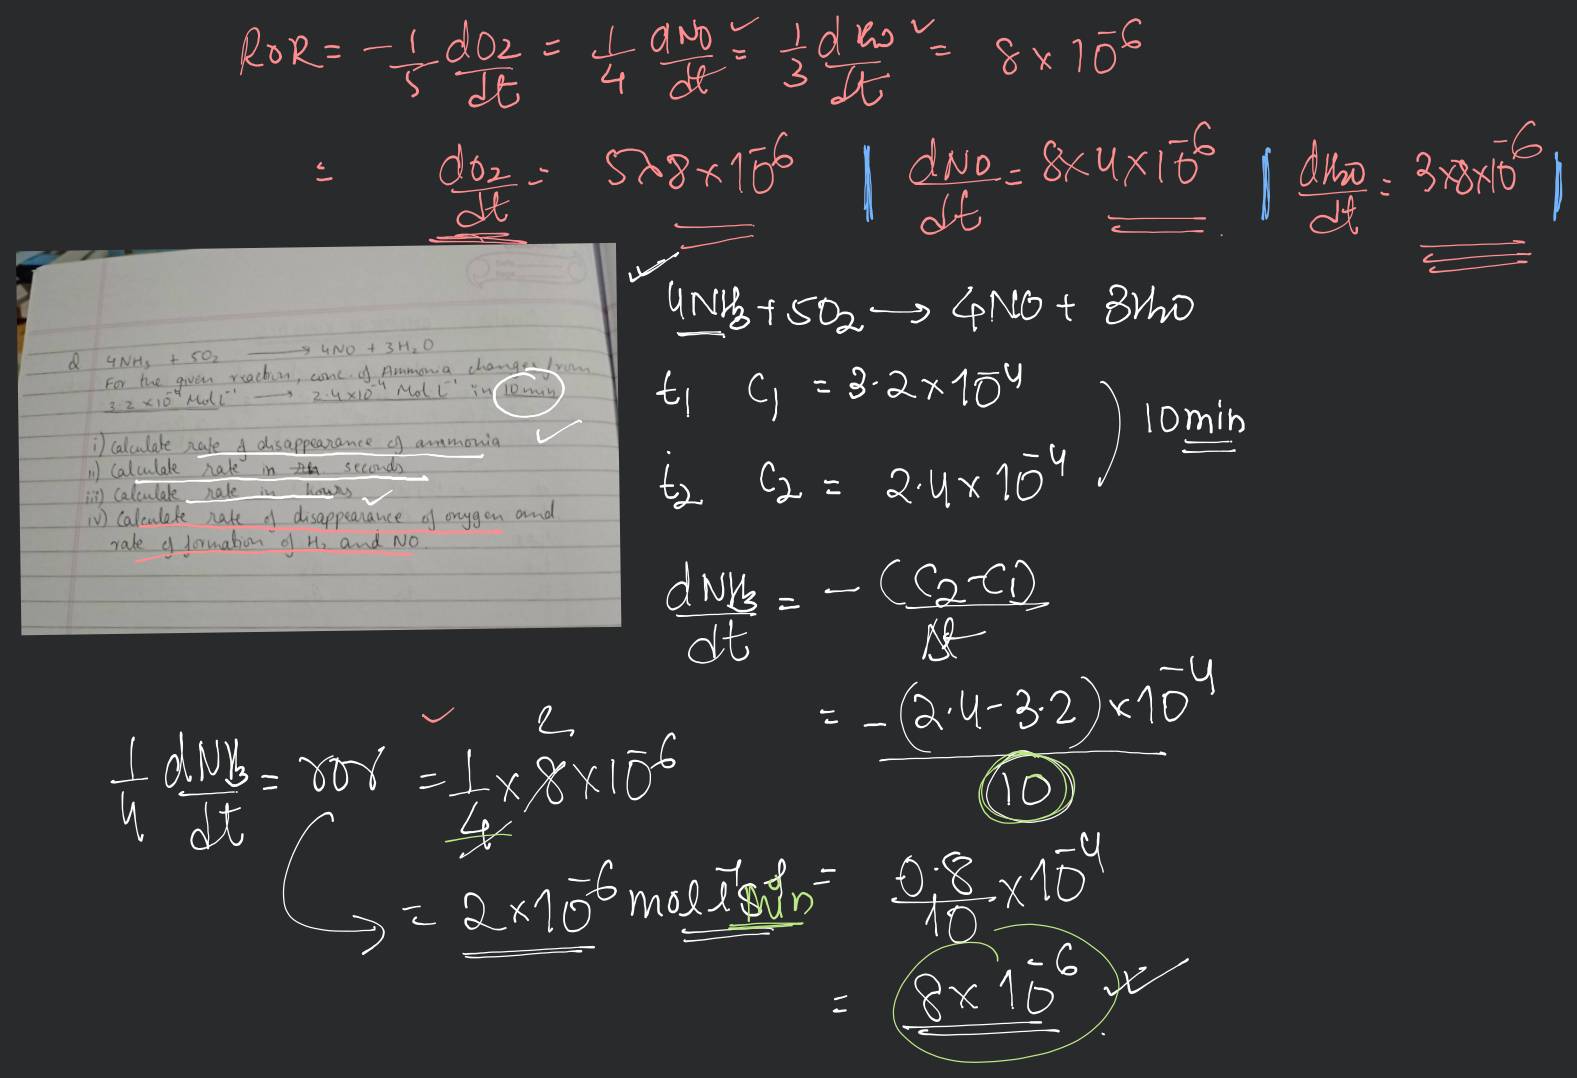 RoR = - 1/5 dO2/dt = 1/4 dNO/dt = 1/3 dH2O/dt = 8 x 10^-6
= dO2/dt = 5x8x10^-6 | dNO/dt = 8x4x10^-6 | dH2O/dt = 3x8x10^-6 |
Q 4NH3 + 5O2 → 4NO + 3H2O
For the given reaction, conc. of Ammonia changes from
3.2 x10^-4 Mol L^-1 → 2.4 x10^-4 Mol L^-1 in 10 min
i) Calculate rate of disappearance of ammonia
ii) Calculate rate in seconds
iii) Calculate rate in hours
iv) Calculate rate of disappearance of oxygen and
rate of formation of H2 and NO.
4NH3 + 5O2 → 4NO + 3H2O
t1 C1 = 3.2 x 10^-4
10 min
t2 C2 = 2.4 x 10^-4
dNH3/dt = - (C2-C1)/Δt
= -(2.4-3.2) x 10^-4 / 10
= 0.8/10 x 10^-4
= 8 x 10^-6
1/4 dNH3/dt = ror = 1/4 x 8 x 10^-6
2
= 2 x 10^-6 mol l^-1 min^-1